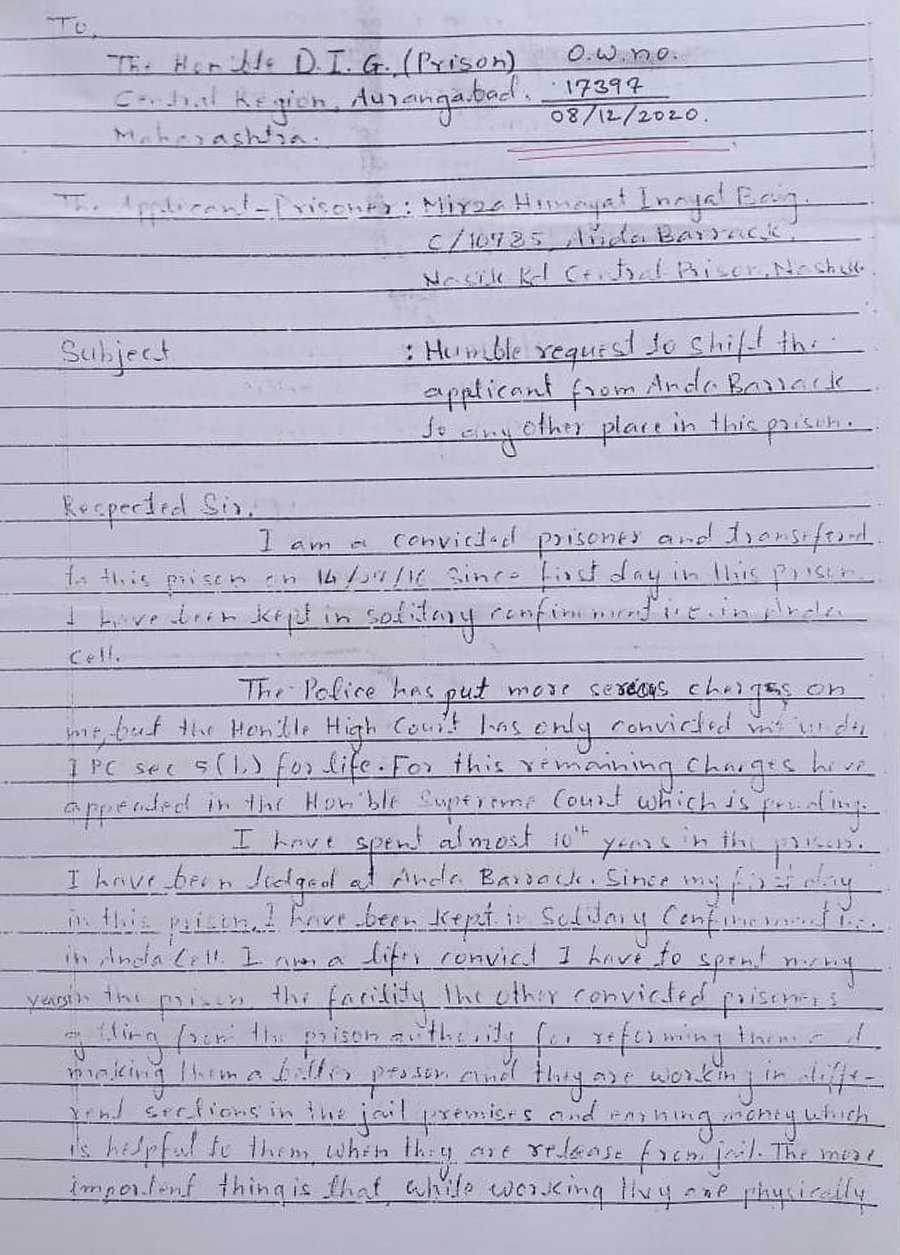 To,
The Hon'ble D.I.G. (Prison) O.W.no.
Central Region, Aurangabad. 17397
Maharashtra. 08/12/2020.
The Applicant-Prisoner : Mirza Himayat Inayat Baig.
C/10785, Anda Barrack,
Nasik Rd Central Prison, Nashik.
Subject : Humble request to shift the
applicant from Anda Barrack
to any other place in this prison.
Respected Sir,
I am a convicted prisoner and transfered
to this prison on since first day in this prison
I have been kept in solitary confinment i.e. in Anda
Cell.
The Police has put more serious charges on
me, but the Hon'ble High Court has only convicted me under
IPC sec for life. For this remaining charges have
appealed in the Hon'ble Supreme Court which is pending.
I have spent almost 10th years in the prison.
I have been lodged at Anda Barrack. Since my first day
in this prison, I have been kept in Solitary Confinement i.e.
in Anda Cell. I am a lifer convict I have to spent many
years in the prison the facility the other convicted prisoners
from the prison authority for reforming them
making them a better person and they are working in diffe-
rent sections in the jail premises and earning money which
is helpful to them when they are release from jail. The more
important thing is that, while working they are physically